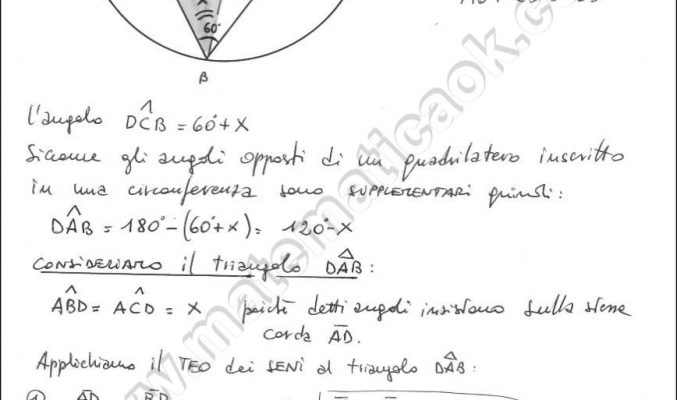 x
60°
B
l'angolo DĈB = 60°+x
Siccome gli angoli opposti di un quadrilatero inscritto
in una circonferenza sono SUPPLEMENTARI quindi:
DÂB = 180°-(60°+x)= 120°-x
CONSIDERIAMO il triangolo DÂB:
AB̂D = AĈD = x poiché detti angoli insistono sulla stessa
corda AD.
Applichiamo il TEO dei SENI al triangolo DÂB:
www.matematicaok.co